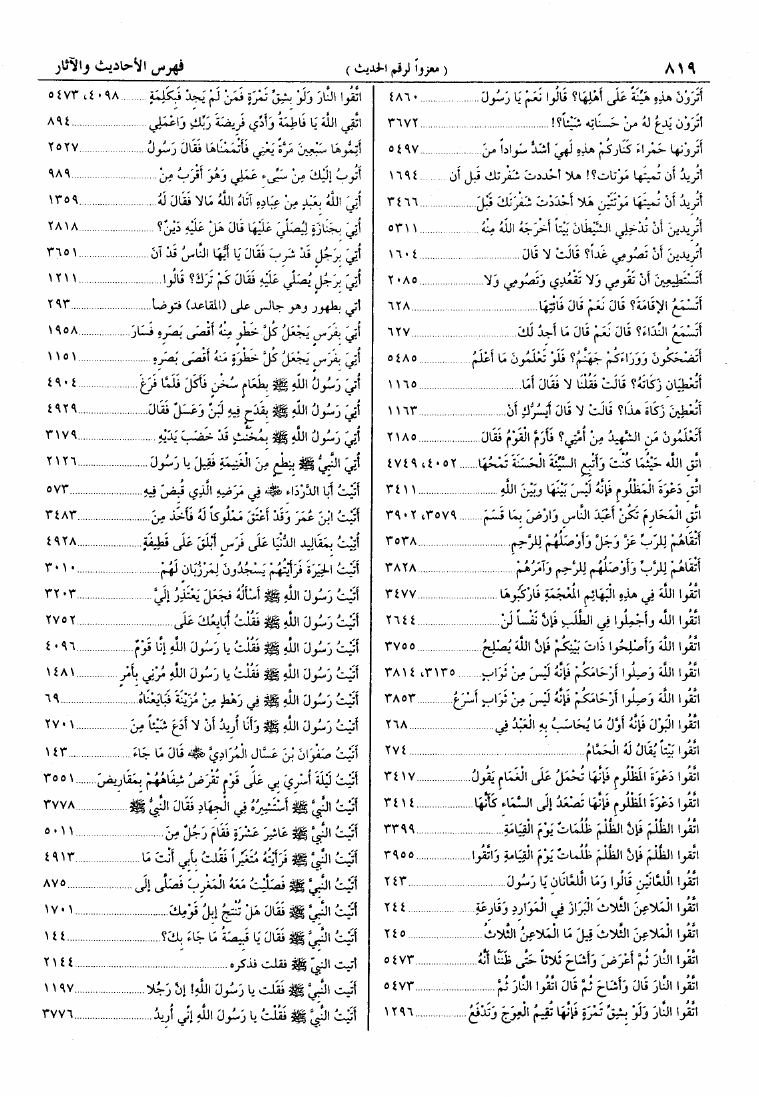 ٨١٩ ( معزواً لرقم الحديث ) فهرس الأحاديث والآثار
أَتَرَوْنَ هذِهِ هَيِّنَةً عَلَى أَهْلِهَا؟ قَالُوا نَعَمْ يَا رَسُولَ ٤٨٦٠
أَتَرَوْن يَدعُ لَهُ منْ حَسَنَاتِه شَيْئاً؟! ٣٦٧٢
أَتَرَوْنها حَمْراءَ كَنَارِكُمْ هذِه لَهِيَ أَشدُّ سَواداً منَ ٥٤٩٧
أَتُريدُ أَن تُميتَها مَوْتات؟! هلا أحْددتَ شَفْرتك قبل أن ١٦٩٤
أَتُرِيدُ أَنْ تُمِيتَهَا مَوْتَتَيْنِ هَلاَ أَحْدَدْتَ شَفْرَتَكَ قَبْلَ ٣٤٦٦
أَتُرِيدِينَ أَنْ تُدْخِلِي الشَّيْطَانَ بَيْتاً أَخرَجَهُ اللَّهُ مِنْهُ ٥٣١١
أَتُرِيدينَ أَنْ تَصُومِي غَداً؟ قَالَتْ لا قَالَ ١٦٠٤
أَتَسْتَطِيعينَ أَنْ تَقُومِي وَلا تَقْعُدِي وَتَصُومِي وَلا ٢٠٨٥
أَتَسْمَعُ الإِقَامَةَ؟ قَالَ نَعَمْ قَالَ فَائْتِهَا ٦٢٨
أَتَسْمَعُ النِّدَاءَ؟ قَالَ نَعَمْ قَالَ مَا أَجِدُ لَكَ ٦٢٧
أَتَضْحَكُونَ وَوَرَاءَكُمْ جَهَنَّمُ؟ فَلَوْ تَعْلَمُونَ مَا أَعْلَمُ ٥٤٨٥
أَتُعْطِيَانِ زَكَاتَهُ؟ قَالَتْ فَقُلْنَا لا فَقَالَ أَمَا ١١٦٥
أَتُعْطِينَ زَكَاةَ هذَا؟ قَالَتْ لا قَالَ أَيَسُرُّكِ أَنْ ١١٦٣
أَتَعْلَمُونَ مَنِ الشَّهِيدُ مِنْ أُمَّتِي؟ فَأَرَمَّ الْقَوْمُ فَقَالَ ٢١٨٥
اتَّقِ اللَّه حَيْثُمَا كُنْتَ وَأَتْبِعِ السَّيِّئَةَ الْحَسَنَةَ تَمْحُهَا ٤٠٥٢، ٤٧٤٩
اتَّقِ دَعْوَةَ الْمَظْلُومِ فَإِنَّهُ لَيْسَ بَيْنَهَا وَبَيْنَ اللَّهِ ٣٤١١
اتَّقِ الْمَحَارِمَ تَكُنْ أَعْبَدَ النَّاسِ وَارْضَ بِمَا قَسَمَ ٣٥٧٩، ٣٩٠٢
أَتْقَاهُمْ لِلرَّبِّ عَزَّ وَجَلَّ وَأَوْصَلُهُمْ لِلرَّحِمِ ٣٥٣٨
أَتْقَاهُمْ لِلرَّبِّ وَأَوْصَلُهُم لِلرَّحِمِ وَآمَرُهُمْ ٣٨٢٨
اتَّقُوا اللَّهَ فِي هذِهِ الْبَهَائِمِ الْمُعْجَمَةِ فَارْكَبُوهَا ٣٤٧٧
اتَّقُوا اللَّه وَأَجْمِلُوا فِي الطَّلَبِ فَإِنَّ نَفْساً لَنْ ٢٦٤٤
اتَّقُوا اللَّهَ وَأَصْلِحُوا ذَاتَ بَيْنِكُمْ فَإِنَّ اللَّهَ يُصْلِحُ ٣٧٥٥
اتَّقُوا اللَّهَ وَصِلُوا أَرْحَامَكُمْ فَإِنَّهُ لَيْسَ مِنْ ثَوَابٍ ٣١٣٥، ٣٨١٤
اتَّقُوا اللَّهَ وَصِلُوا أَرْحَامَكُمْ فَإِنَّهُ لَيْسَ مِنْ ثَوَابٍ أَسْرَعُ ٣٨٥٣
اتَّقُوا الْبَوْلَ فَإِنَّهُ أَوَّلُ مَا يُحَاسَبُ بِهِ الْعَبْدُ فِي ٢٦٨
اتَّقُوا بَيْتاً يُقَالُ لَهُ الْحَمَّامُ ٢٧٤
اتَّقُوا دَعْوَةَ الْمَظْلُومِ فَإِنَّهَا تُحْمَلُ عَلَى الْغَمَامِ يَقُولُ ٣٤١٧
اتَّقُوا دَعْوَةَ الْمَظْلُومِ فَإِنَّهَا تَصْعَدُ إِلَى السَّمَاءِ كَأَنَّهَا ٣٤١٤
اتَّقُوا الظُّلْمَ فَإِنَّ الظُّلْمَ ظُلُمَاتٌ يَوْمَ الْقِيَامَةِ ٣٣٩٩
اتَّقُوا الظُّلْمَ فَإِنَّ الظُّلْمَ ظُلُمَاتٌ يَوْمَ الْقِيَامَةِ وَاتَّقُوا ٣٩٥٥
اتَّقُوا اللَّعَّانَيْنِ قَالُوا وَمَا اللَّعَّانَانِ يَا رَسُولَ ٢٤٣
اتَّقُوا الْمَلاعِنَ الثَّلاثَ الْبَرَازَ فِي الْمَوَارِدِ وَقَارِعَةِ ٢٤٤
اتَّقُوا الْمَلاعِنَ الثَّلاثَ قِيلَ مَا الْمَلاعِنُ الثَّلاثُ ٢٤٥
اتَّقُوا النَّارَ ثُمَّ أَعْرَضَ وَأَشَاحَ ثَلاثاً حَتَّى ظَنَنَّا أَنَّهُ ٥٤٧٣
اتَّقُوا النَّارَ قَالَ وَأَشَاحَ ثُمَّ قَالَ اتَّقُوا النَّارَ ثُمَّ ٥٤٧٣
اتَّقُوا النَّارَ وَلَوْ بِشِقِّ تَمْرَةٍ فَإِنَّهَا تُقِيمُ الْعِوَجَ وَتَدْفَعُ ١٢٩٦
اتَّقُوا النَّارَ وَلَوْ بِشِقِّ تَمْرَةٍ فَمَنْ لَمْ يَجِدْ فَبِكَلِمَةٍ ٤٠٩٨، ٥٤٧٣
اتَّقِي اللَّهَ يَا فَاطِمَةُ وَأَدِّي فَرِيضَةَ رَبِّكِ وَاعْمَلِي ٨٩٤
أَتِمُّوهَا سَبْعِينَ مَرَّةً يَعْنِي فَأَتْمَمْنَاهَا فَقَالَ رَسُولُ ٢٥٢٧
أَتُوبُ إِلَيْكَ مِنْ سَيِّىءِ عَمَلِي وَهُوَ أَقْرَبُ مِنْ ٩٨٩
أُتِيَ اللَّهُ بِعَبْدٍ مِنْ عِبَادِهِ آتَاهُ اللَّهُ مَالا فَقَالَ لَهُ ١٣٥٩
أُتِيَ بِجَنَازَةٍ لِيُصَلِّيَ عَلَيْهَا قَالَ هَلْ عَلَيْهِ دَيْنٌ؟ ٢٨١٨
أُتِيَ بِرَجُلٍ قَدْ شَرِبَ فَقَالَ يَا أَيُّهَا النَّاسُ قَدْ آنَ ٣٦٥١
أُتِيَ بِرَجُلٍ يُصَلِّي عَلَيْهِ فَقَالَ كَمْ تَرَكَ؟ قَالُوا ١٢١١
أتي بطهور وهو جالس على (المقاعد) فتوضأ ٢٩٣
أُتِيَ بِفَرَسٍ يَجْعَلُ كُلَّ خَطْوٍ مِنْهُ أَقْصَى بَصَرِهِ فَسَارَ ١٩٥٨
أُتِيَ بِفَرَسٍ يَجْعَلُ كُلَّ خَطْوَةٍ مِنهُ أَقْصَى بَصَرِهِ ١١٥١
أُتِيَ رَسُولُ اللَّهِ ﷺ بِطَعَامٍ سُخْنٍ فَأَكَلَ فَلَمَّا فَرَغَ ٤٩٠٤
أُتِيَ رَسُولُ اللَّهِ ﷺ بِقَدَحٍ فِيهِ لَبَنٌ وَعَسَلٌ فَقَالَ ٤٩٢٩
أُتِيَ رَسُولُ اللَّهِ ﷺ بِمُخَنَّثٍ قَدْ خَضَبَ يَدَيْهِ ٣١٧٩
أُتِيَ النَّبِيُّ ﷺ بِنِطَعٍ مِنَ الْغَنِيمَةِ فَقِيلَ يَا رَسُولَ ٢١٢٦
أَتَيْتُ أَبَا الدَّرْدَاءِ رضي الله عنه فِي مَرَضِهِ الَّذِي قُبِضَ فِيهِ ٥٧٣
أَتَيْتُ ابْنَ عُمَرَ وَقَدْ أَعْتَقَ مَمْلُوكاً لَهُ فَأَخَذَ مِنَ ٣٤٨٣
أُتِيتُ بِمَقَالِيدِ الدُّنْيَا عَلَى فَرَسٍ أَبْلَقَ عَلَى قَطِيفَةٍ ٤٩٢٨
أَتَيْتُ الْحِيرَةَ فَرَأَيْتُهُمْ يَسْجُدُونَ لِمَرْزُبَانٍ لَهُمْ ٣٠١٠
أَتَيْتُ رَسُولَ اللَّهِ ﷺ أَسْأَلُهُ فَجعَلَ يَعْتَذِرُ إِلَيَّ ٣٢٠٣
أَتَيْتُ رَسُولَ اللَّهِ ﷺ فَقُلْتُ أُبَايِعُكَ عَلَى ٢٧٥٢
أَتَيْتُ رَسُولَ اللَّهِ ﷺ فَقُلْتُ يا رَسُولَ اللَّهِ إِنَّا قَوْمٌ ٤٠٩٦
أَتَيْتُ رَسُولَ اللَّهِ ﷺ فَقُلْتُ يا رَسُولَ اللَّهِ مُرْنِي بِأَمْرٍ ١٤٨١
أَتَيْتُ رَسُولَ اللَّهِ ﷺ فِي رَهْطٍ مِنْ مُزَيْنَةَ فَبَايَعْنَاهُ ٦٩
أَتَيْتُ رَسُولَ اللَّهِ ﷺ وَأَنَا أُرِيدُ أَنْ لا أَدَعَ شَيْئاً مِنَ ٢٧٠١
أَتَيْتُ صَفْوَانَ بْنَ عَسَّالٍ الْمُرَادِيَّ رضي الله عنه قَالَ مَا جَاءَ ١٤٣
أَتَيْتُ لَيْلَةَ أُسْرِيَ بِي عَلَى قَوْمٍ تُقْرَضُ شِفَاهُهُمْ بِمَقَارِيضَ ٣٥٥١
أَتَيْتُ النَّبِيَّ ﷺ أَسْتَشِيرُهُ فِي الْجِهَادِ فَقَالَ النَّبِيُّ ﷺ ٣٧٧٨
أَتَيْتُ النَّبِيَّ ﷺ عَاشِرَ عَشَرَةٍ فَقَامَ رَجُلٌ مِنَ ٥٠١١
أَتَيْتُ النَّبِيَّ ﷺ فَرَأَيْتُهُ مُتَغَيِّراً فَقُلْتُ بِأَبِي أَنْتَ مَا ٤٩١٣
أَتَيْتُ النَّبِيَّ ﷺ فَصَلَّيْتُ مَعَهُ الْمَغْرِبَ فَصَلَّى إِلَى ٨٧٥
أَتَيْتُ النَّبِيَّ ﷺ فَقَالَ هَلْ تُنْتَجُ إِبِلُ قَوْمِكَ ١٧٠١
أَتَيْتُ النَّبِيَّ ﷺ فَقَالَ يَا قَبِيصَةُ مَا جَاءَ بِكَ؟ ١٤٤
أتيت النبيّ ﷺ فقلت فذكره ٢١٤٤
أَتَيت النبيَّ ﷺ فَقَلت يا رَسُولَ اللَّهِ! إنَّ رَجُلا ١١٩٧
أَتَيْتُ النَّبِيَّ ﷺ فَقُلْتُ يا رَسُولَ اللَّهِ إِنِّي أُرِيدُ ٣٧٧٦